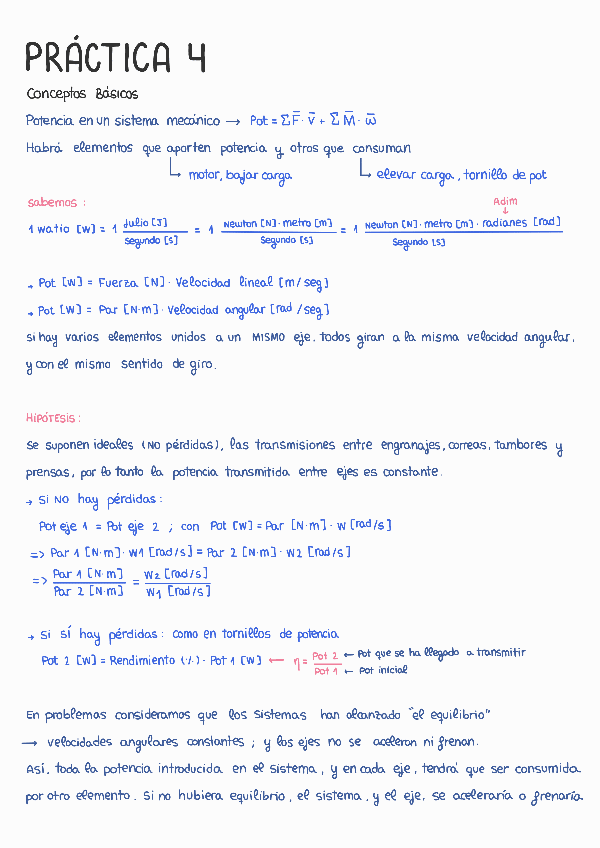 PRÁCTICA 4
Conceptos Básicos
Potencia en un sistema mecánico → Pot = Σ F̄ · v̄ + Σ M̄ · ω̄
Habrá elementos que aporten potencia y otros que consuman
↳ motor, bajar carga ↳ elevar carga, tornillo de pot
sabemos :
Adim
↓
1 watio [W] = 1 Julio [J] / Segundo [s] = 1 Newton [N] · metro [m] / Segundo [s] = 1 Newton [N] · metro [m] · radianes [rad] / Segundo [s]
→ Pot [W] = Fuerza [N] · Velocidad lineal [m/seg]
→ Pot [W] = Par [N·m] · Velocidad angular [rad/seg]
Si hay varios elementos unidos a un MISMO eje, todos giran a la misma velocidad angular,
y con el mismo sentido de giro.
HIPÓTESIS :
Se suponen ideales (NO pérdidas), las transmisiones entre engranajes, correas, tambores y
prensas, por lo tanto la potencia transmitida entre ejes es constante.
→ Si NO hay pérdidas :
Pot eje 1 = Pot eje 2 ; con Pot [W] = Par [N·m] · W [rad/s]
=> Par 1 [N·m] · W1 [rad/s] = Par 2 [N·m] · W2 [rad/s]
=> Par 1 [N·m] / Par 2 [N·m] = W2 [rad/s] / W1 [rad/s]
→ Si SÍ hay pérdidas : como en tornillos de potencia
Pot 2 [W] = Rendimiento (%) · Pot 1 [W] ← η = Pot 2 / Pot 1 ← Pot que se ha llegado a transmitir
← Pot inicial
En problemas consideramos que los sistemas han alcanzado "el equilibrio"
→ velocidades angulares constantes ; y los ejes no se aceleran ni frenan.
Así, toda la potencia introducida en el sistema, y en cada eje, tendrá que ser consumida
por otro elemento. Si no hubiera equilibrio, el sistema, y el eje, se aceleraría o frenaría.